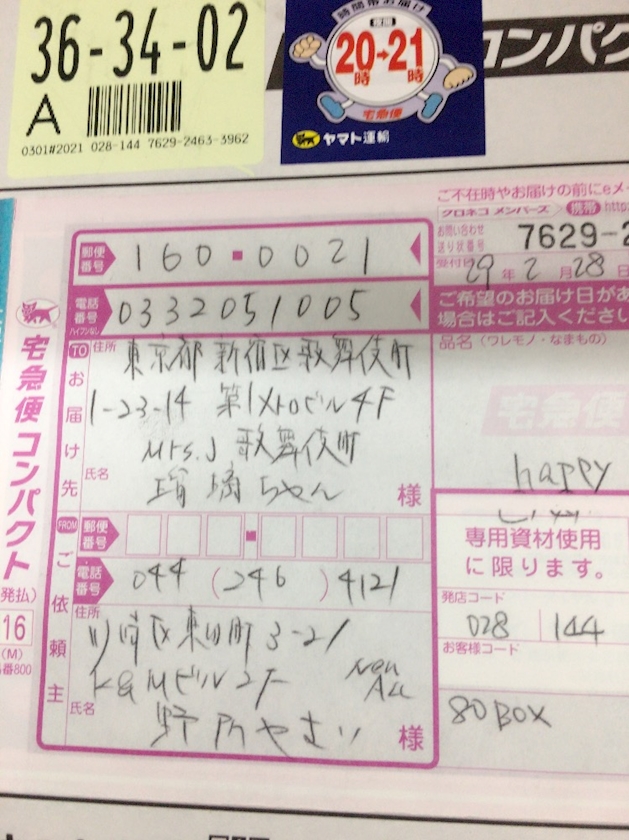 36-34-02
A
0301#2021 028-144 7629-2463-3962
時間帯お届け
20時→21時
宅急便
ヤマト運輸
コンパク
ご不在時やお届けの前にeメ
クロネコ メンバーズ 携帯 http
お問い合わせ
送り状番号
7629-2
受付日 29年 2月 28日
ご希望のお届け日があ
場合はご記入ください
品名(ワレモノ・なまもの)
宅急便
happy
専用資材使用
に限ります。
発店コード
028 144
お客様コード
80BOX
宅急便コンパクト
発払)
16
(M)
番800
郵便番号 160-0021
電話番号 ハイフンなし 0332051005
TO お届け先
住所 東京都 新宿区歌舞伎町
1-23-14 第1メトロビル4F
Mrs.J 歌舞伎町
氏名 瑠璃ちゃん 様
FROM ご依頼主
郵便番号
電話番号 044 (246) 4121
住所 川崎区東田町 3-21
K&Mビル2F
氏名 様